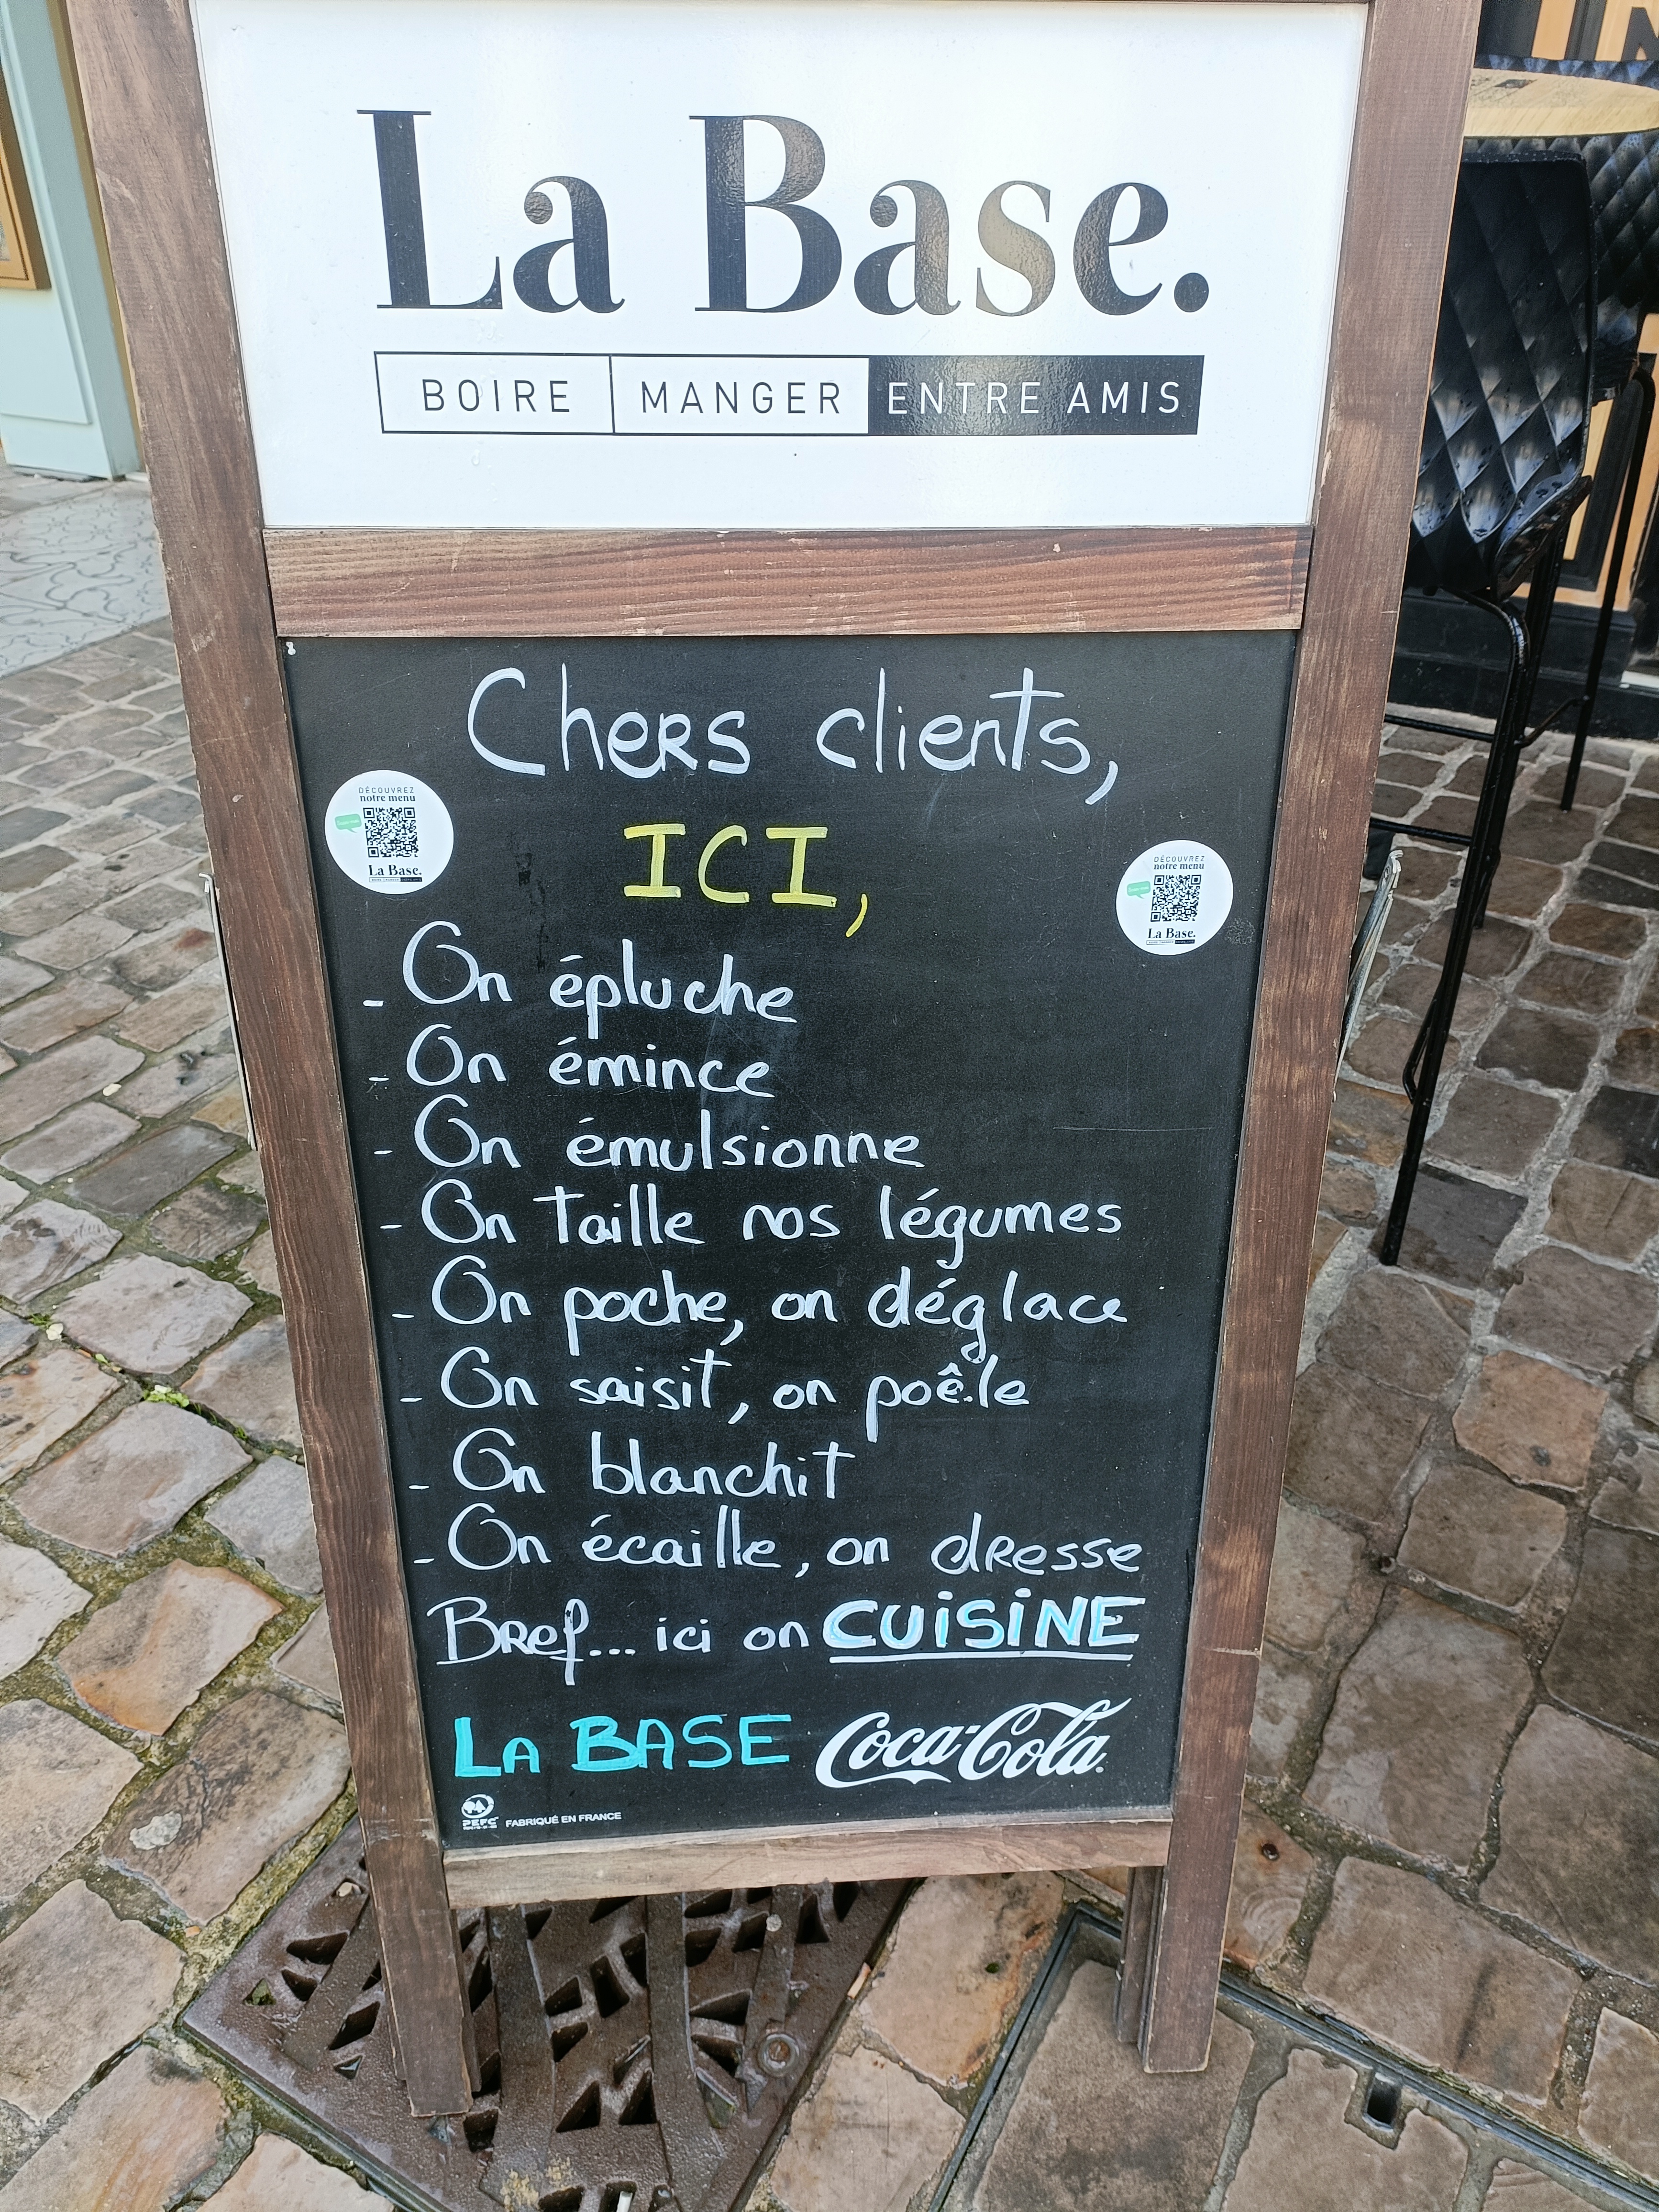 La Base.
BOIRE MANGER ENTRE AMIS
Chers clients,
DÉCOUVREZ
notre menu
La Base.
ICI,
DÉCOUVREZ
notre menu
La Base.
- On épluche
- On émince
- On émulsionne
- On taille nos légumes
- On poche, on déglace
- On saisit, on poêle
- On blanchit
- On écaille, on dresse
Bref... ici on CUISINE
LA BASE Coca-Cola
PEFC FABRIQUÉ EN FRANCE